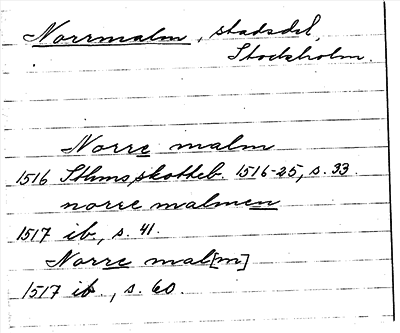 Norrmalm, stadsdel,
Stockholm.
Norre malm
1516 Sthms skotteb. 1516-25, s. 33.
norre malmen
1517 ib., s. 41.
Norre mal[m]
1517 ib., s. 60.